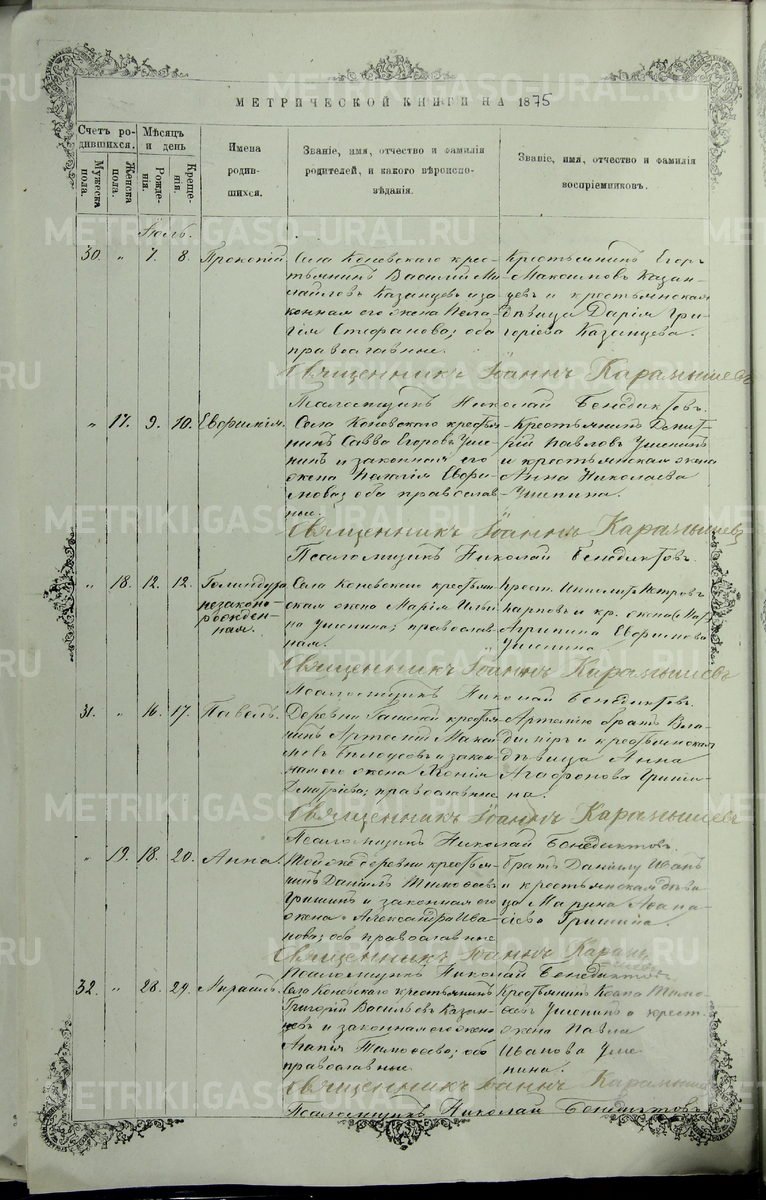 МЕТРИЧЕСКОЙ КНИГИ НА 1875
Счетъ ро-
дившихся.
Мѣсяцъ
и день
Имена
родив-
шихся.
Званіе, имя, отчество и фамилія
родителей, и какого вѣроиспо-
вѣданія.
Званіе, имя, отчество и фамилія
воспріемниковъ.
Мужеска
пола.
Женска
пола.
Рожде-
нія.
Креще-
нія.
Іюль.
30. " 7. 8. Прокопій.
Села Коневскаго крес-
тьянинъ Василій Ми-
хайловъ Казанцевъ и за-
конная его жена Пела-
гія Стефанова; оба
православные.
Крестьянинъ Егоръ
Максимовъ Казан-
цевъ и крестьянская
дѣвица Дарія Гри-
горіева Казанцева.
Священникъ Іоаннъ Карамышевъ
Псаломщикъ Николай Бенедиктовъ.
" 17. 9. 10. Евфимія.
Села Коневскаго крестья-
нинъ Савва Егоровъ Уше-
нинъ и законная его
жена Пелагія Евфи-
мова; оба православ-
ные.
Крестьянинъ Дмит-
рій Павловъ Ушенинъ
и крестьянская жена
Анна Николаева
Ушенина.
Священникъ Іоаннъ Карамышевъ
Псаломщикъ Николай Бенедиктовъ.
" 18. 12. 12.
незаконо-
рожден-
ная.
Села Коневскаго крестьян-
ская жена Марія Ильи-
на Ушенина; православ-
ная.
Крест. Петровъ
Карповъ и кр. жена
Агрипина Евфимова
Ушенина
Священникъ Іоаннъ Карамышевъ
Псаломщикъ Николай Бенедиктовъ.
31. " 16. 17. Павелъ.
Деревни крестья-
нинъ Артемій Макси-
мовъ и закон-
ная его жена
Дмитріева; православные
Артемію братъ Вла-
диміръ и крестьянская
дѣвица Анна
Агафонова Гриши-
на.
Священникъ Іоаннъ Карамышевъ
Псаломщикъ Николай Бенедиктовъ.
" 19. 18. 20. Анна.
Той же деревни крестья-
нинъ Даніилъ Тимофеевъ
Гришинъ и законная его
жена Александра Ива-
нова; оба православные
братъ Даніилу Иванъ
и крестьянская дѣви-
ца Марина Афана-
сіева Гришина.
Священникъ Іоаннъ Карамышевъ
Псаломщикъ Николай Бенедиктовъ
32. " 28. 29.
Села Коневскаго крестьянинъ
Григорій Васильевъ Казан-
цевъ и законная его жена
Агапія Тимофеева; оба
православные.
Крестьянинъ Тимо-
феевъ Ушенинъ и крест.
жена Павла
Иванова Уше-
нина.
Священникъ Іоаннъ Карамышевъ
Псаломщикъ Николай Бенедиктовъ
METRIKI.GASO-URAL.RU